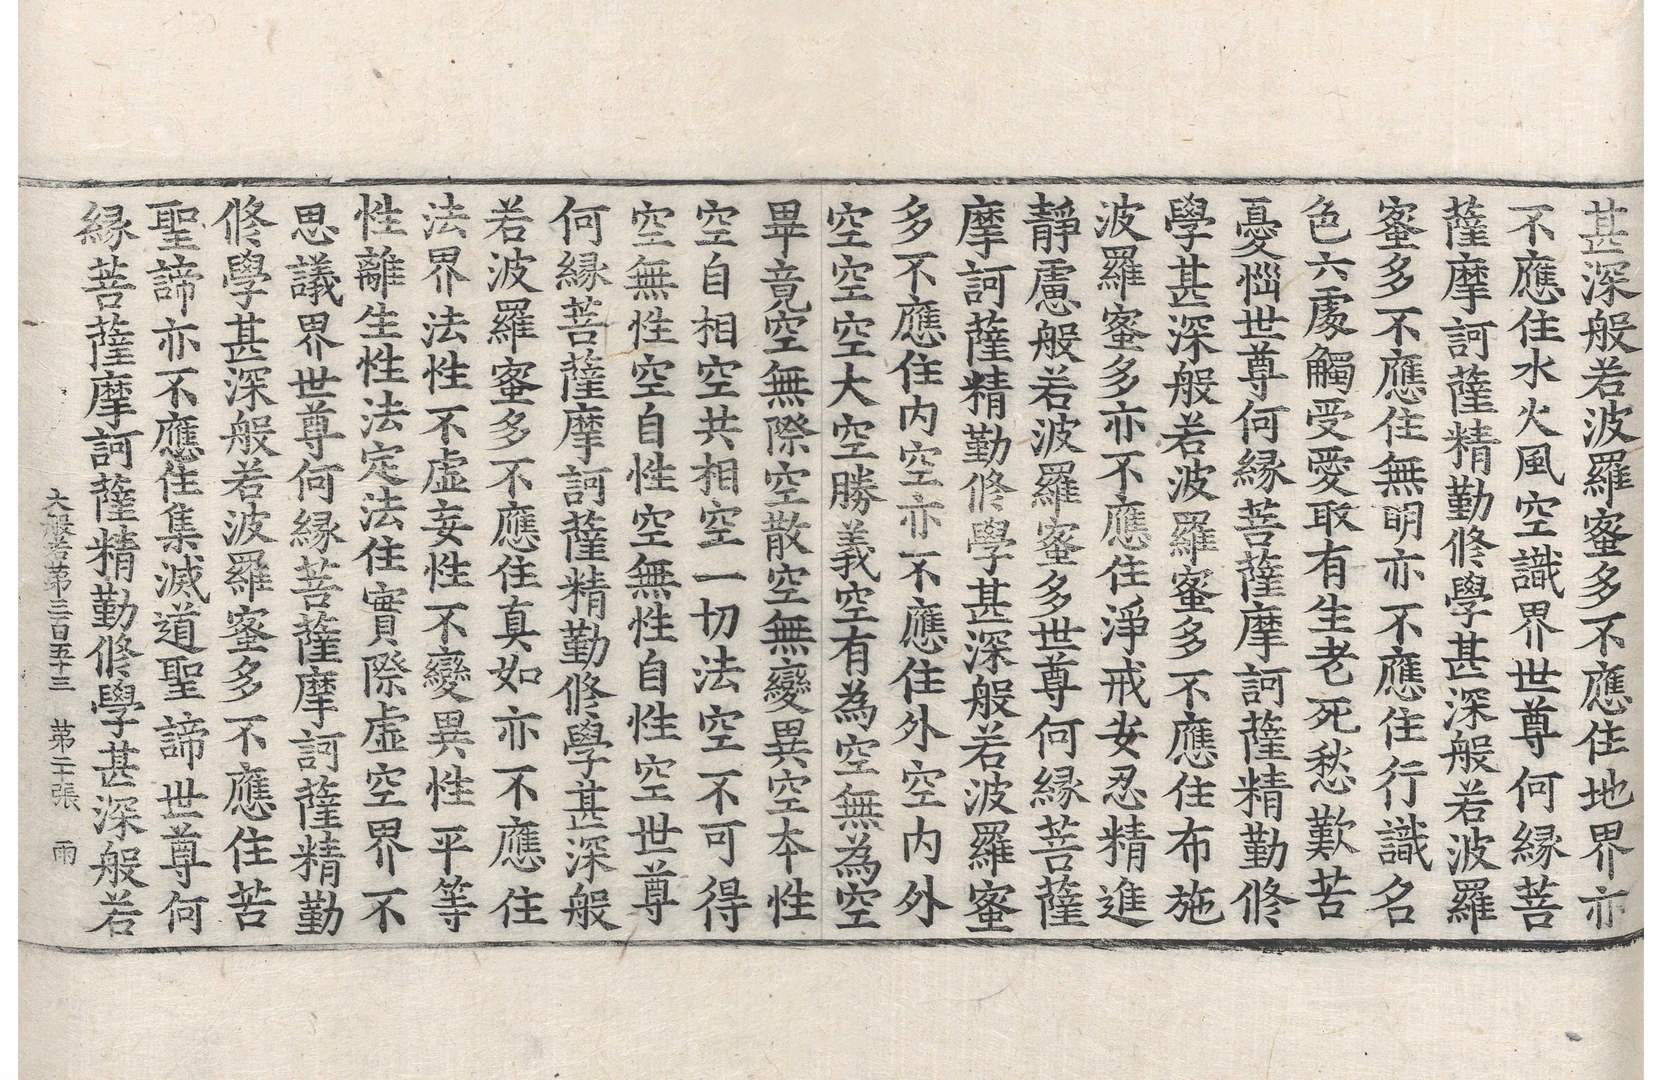 甚深般若波羅蜜多不應住地界亦
不應住水火風空識界世尊何縁菩
薩摩訶薩精勤修學甚深般若波羅
蜜多不應住無明亦不應住行識名
色六處觸受愛取有生老死愁歎苦
憂惱世尊何縁菩薩摩訶薩精勤修
學甚深般若波羅蜜多不應住布施
波羅蜜多亦不應住淨戒安忍精進
靜慮般若波羅蜜多世尊何縁菩薩
摩訶薩精勤修學甚深般若波羅蜜
多不應住内空亦不應住外空内外
空空空大空勝義空有為空無為空
畢竟空無際空散空無變異空本性
空自相空共相空一切法空不可得
空無性空自性空無性自性空世尊
何縁菩薩摩訶薩精勤修學甚深般
若波羅蜜多不應住真如亦不應住
法界法性不虛妄性不變異性平等
性離生性法定法住實際虛空界不
思議界世尊何縁菩薩摩訶薩精勤
修學甚深般若波羅蜜多不應住苦
聖諦亦不應住集滅道聖諦世尊何
縁菩薩摩訶薩精勤修學甚深般若
大般若第三百五十三　第二張　雨